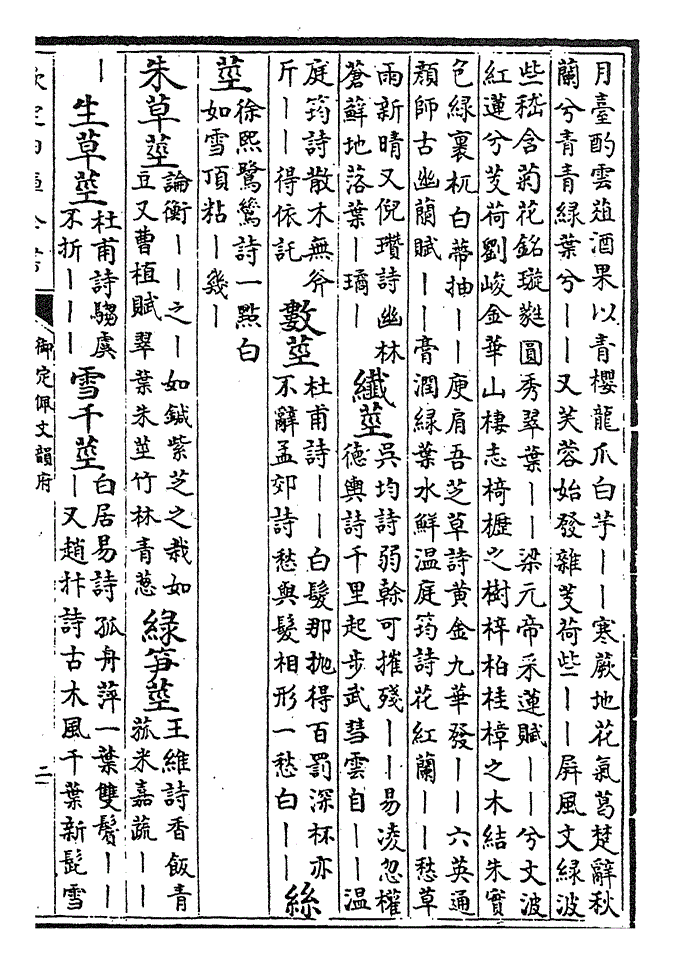 月臺酌雲蒩酒果以青櫻龍爪白芋丨丨寒蕨地花氣萬楚辭秋
蘭兮青青綠葉兮丨丨又芙蓉始發雜芰荷些丨丨屏風文綠波
些嵇含菊花銘璇蕤圓秀翠葉丨丨梁元帝采蓮賦丨丨兮文波
紅蓮兮芰荷劉峻金華山棲志椅櫪之樹梓柏桂樟之木結朱實
包綠裹杌白蔕抽丨丨庾肩吾芝草詩黃金九華發丨丨六英通
顏師古幽蘭賦丨丨膏潤綠葉水鮮溫庭筠詩花紅蘭丨丨愁草
雨新晴又倪瓚詩幽林
蒼蘚地落葉丨璚丨
纖莖
吳均詩弱榦可摧殘丨丨易凌忽權
德輿詩千里起步武彗雲自丨丨溫
庭筠詩散木無斧
斤丨丨得依託
數莖
杜甫詩丨丨白髮那拋得百罰深杯亦
不辭孟郊詩愁與髮相形一愁白丨丨
絲
莖
徐熙鷺鷥詩一點白
如雪頂粘丨幾丨
朱草莖
論衡丨丨之丨如鍼紫芝之栽如
豆又曹植賦翠葉朱莖竹林青蔥
綠筍莖
王維詩香飯青
菰米嘉蔬丨丨
丨
生草莖
杜甫詩騶虞
不折丨丨丨
雪千莖
白居易詩孤舟萍一葉雙鬢丨丨
丨又趙抃詩古木風千葉新髭雪
欽定四庫全書
御定佩文韻府
二